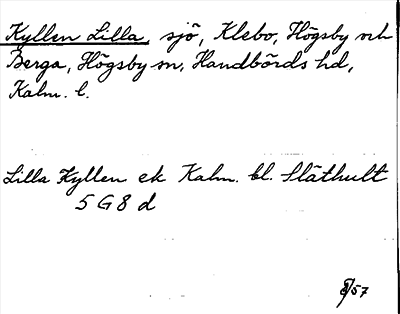 Kyllen Lilla, sjö, Klebo, Högsby och
Berga, Högsby sn, Handbörds hd,
Kalm. l.
Lilla Kyllen ek Kalm. bl. Släthult
5 G 8 d
/57